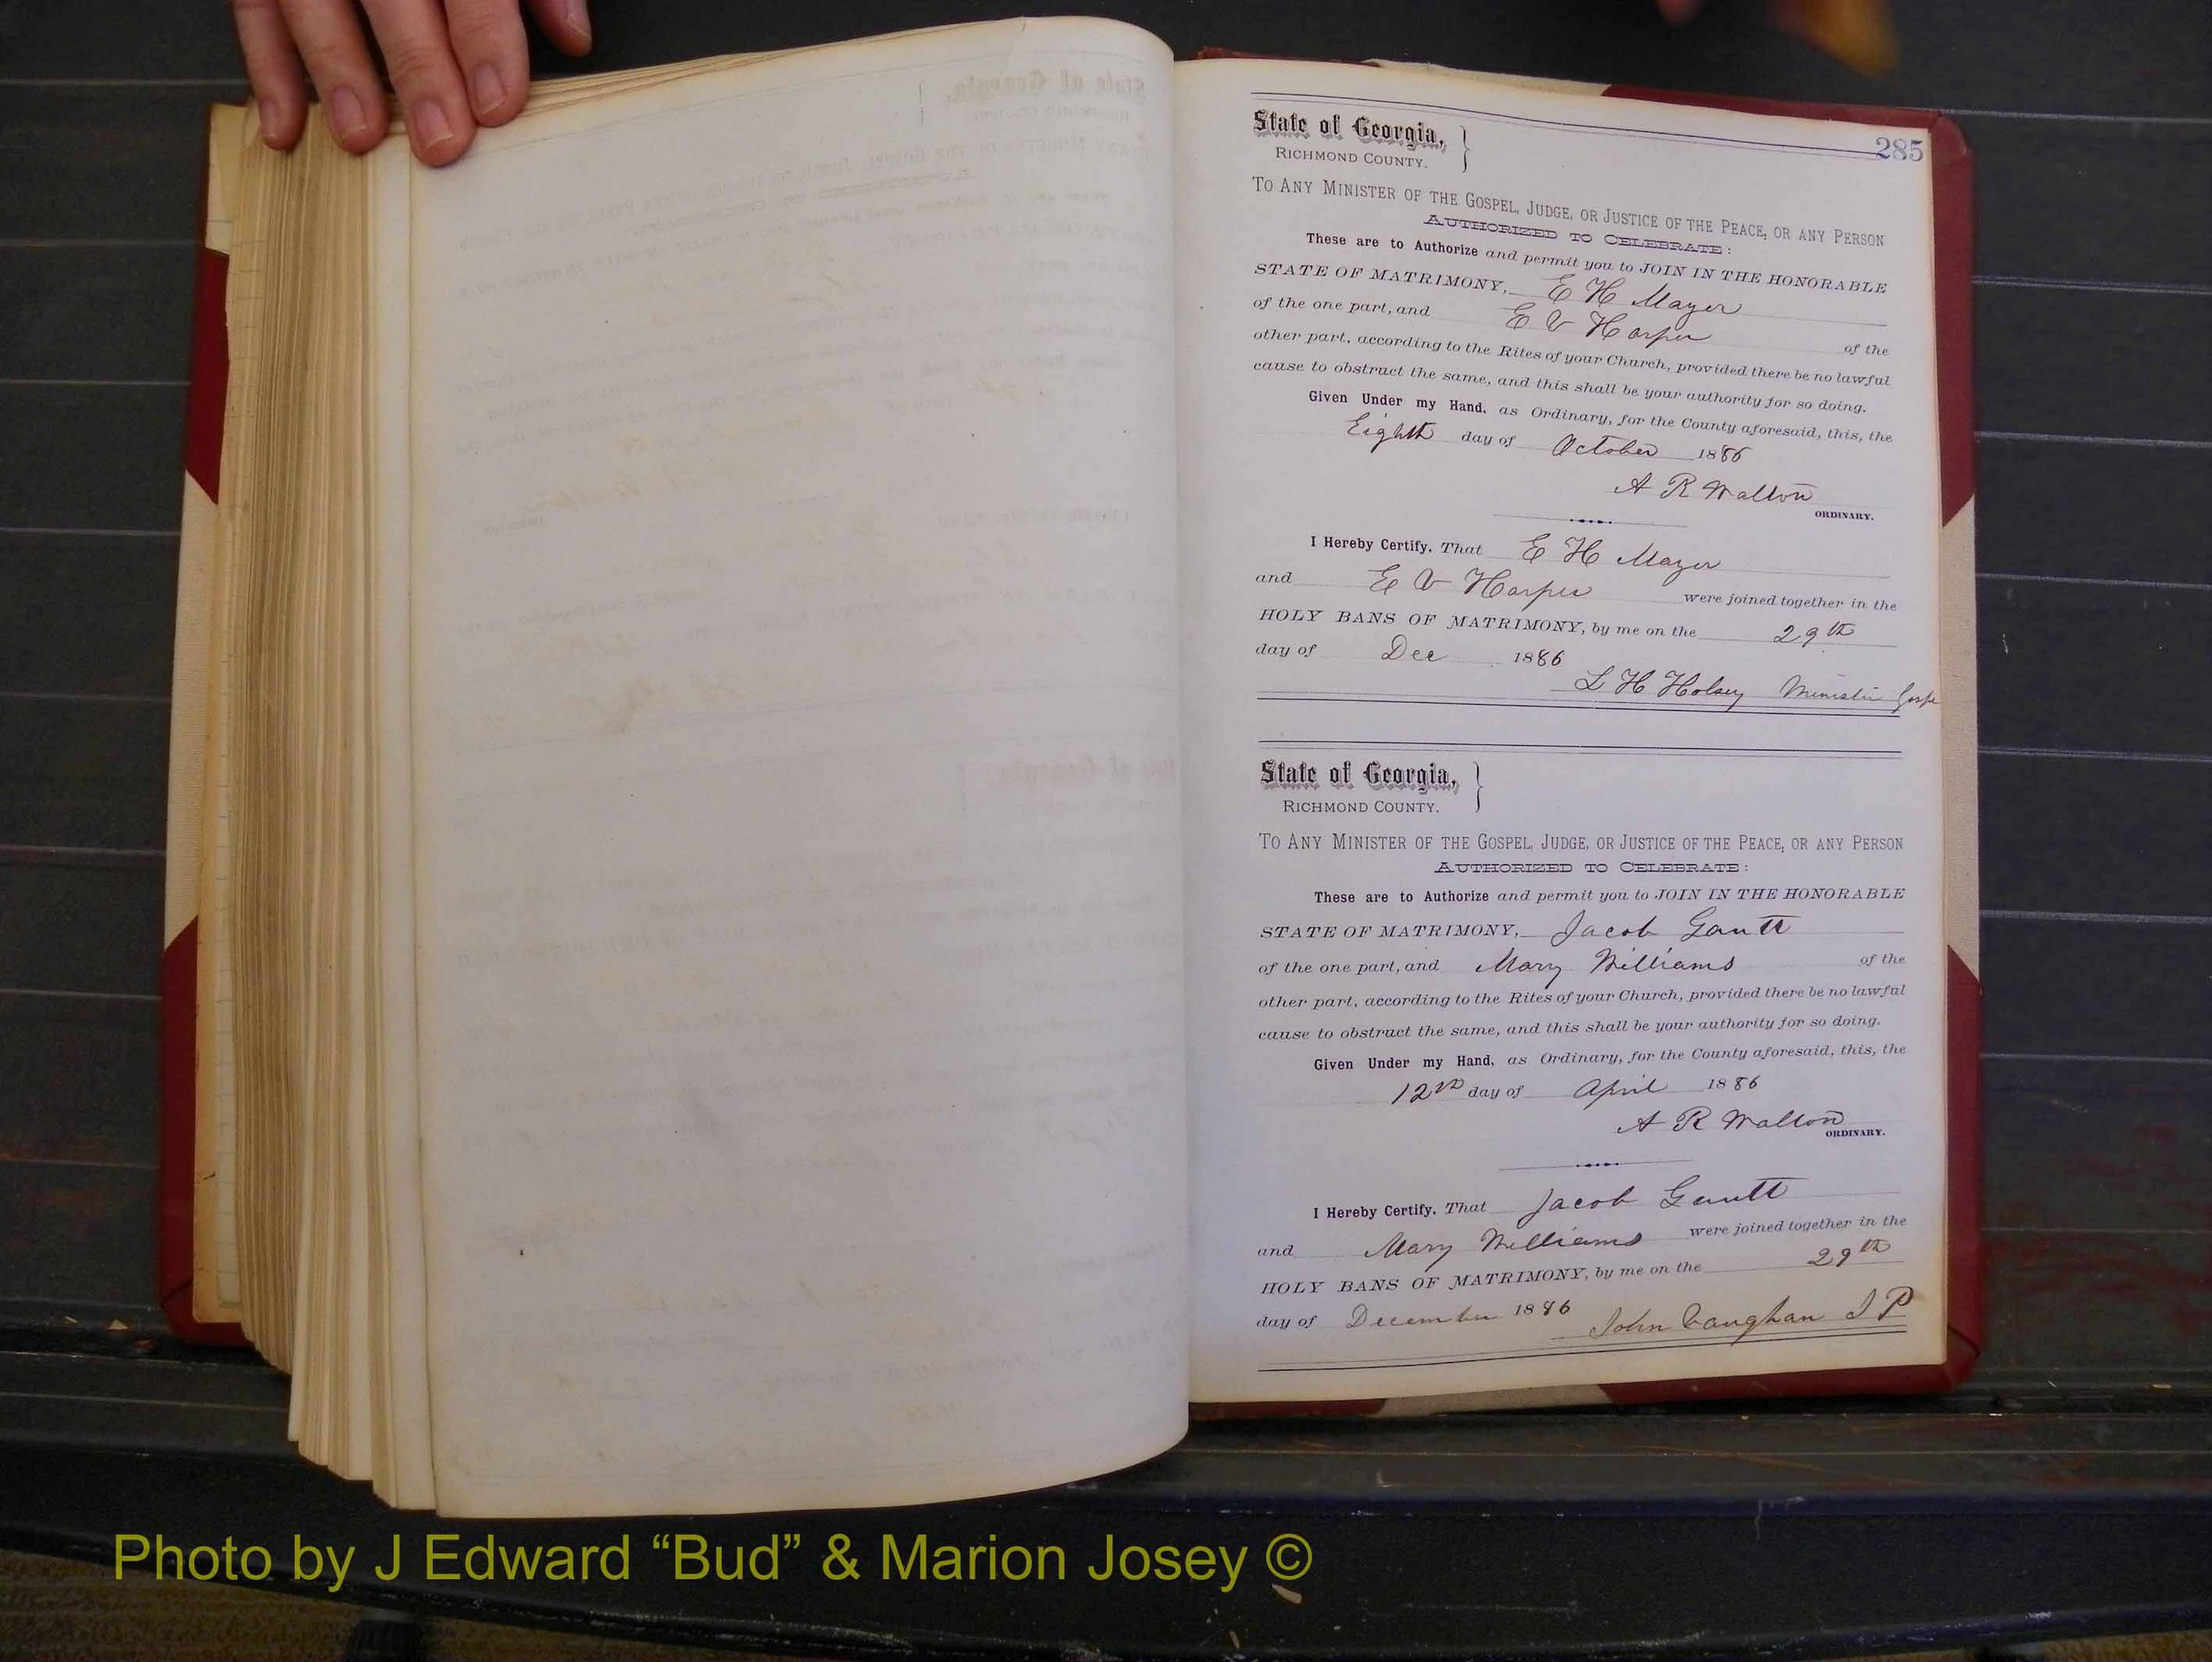 285
State of Georgia, }
RICHMOND COUNTY.
TO ANY MINISTER OF THE GOSPEL, JUDGE, OR JUSTICE OF THE PEACE, OR ANY PERSON
AUTHORIZED TO CELEBRATE:
These are to Authorize and permit you to JOIN IN THE HONORABLE
STATE OF MATRIMONY, E H Mayer
of the one part, and E V Harper of the
other part, according to the Rites of your Church, provided there be no lawful
cause to obstruct the same, and this shall be your authority for so doing.
Given Under my Hand, as Ordinary, for the County aforesaid, this, the
Eighth day of October 1886
A R Walton
ORDINARY.
I Hereby Certify, That E H Mayer
and E V Harper were joined together in the
HOLY BANS OF MATRIMONY, by me on the 29th
day of Dec 1886
L H Holsey Minister Gospe
State of Georgia, }
RICHMOND COUNTY.
TO ANY MINISTER OF THE GOSPEL, JUDGE, OR JUSTICE OF THE PEACE, OR ANY PERSON
AUTHORIZED TO CELEBRATE:
These are to Authorize and permit you to JOIN IN THE HONORABLE
STATE OF MATRIMONY, Jacob Gantt
of the one part, and Mary Williams of the
other part, according to the Rites of your Church, provided there be no lawful
cause to obstruct the same, and this shall be your authority for so doing.
Given Under my Hand, as Ordinary, for the County aforesaid, this, the
12th day of April 1886
A R Walton
ORDINARY.
I Hereby Certify, That Jacob Gantt
and Mary Williams were joined together in the
HOLY BANS OF MATRIMONY, by me on the 29th
day of December 1886 John Vaughan J P
Photo by J Edward “Bud” & Marion Josey ©